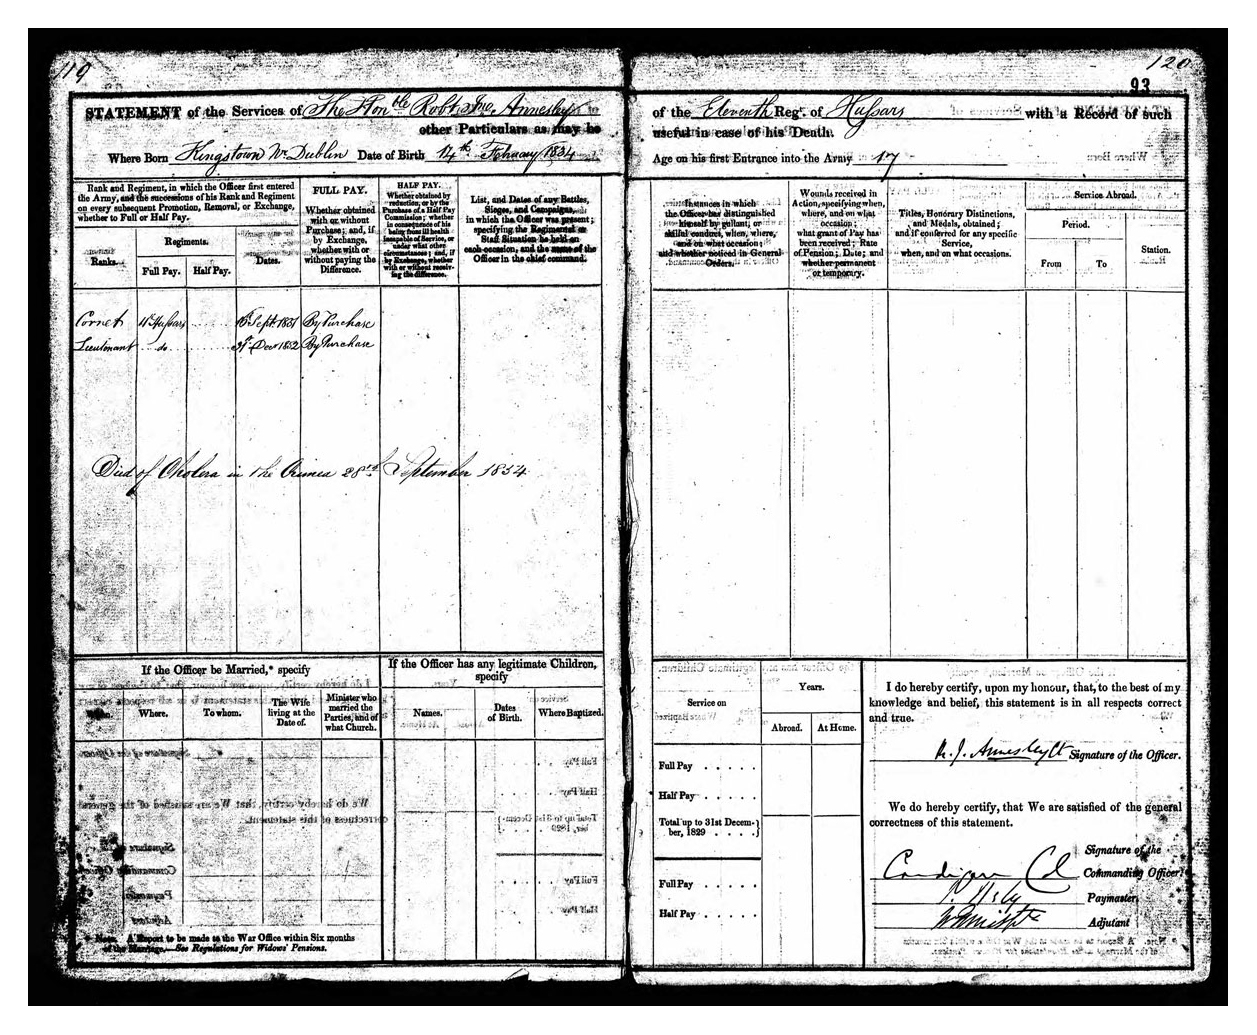 119
STATEMENT of the Services of The Hon ble Robt Jno. Annesley
other Particulars as may be
Where Born Kingstown Nr Dublin Date of Birth 14th February 1834
Rank and Regiment, in which the Officer first entered
the Army, and the successions of his Rank and Regiment
on every subsequent Promotion, Removal, or Exchange,
whether to Full or Half Pay.
Regiments.
Ranks.
Full Pay.
Half Pay.
Dates.
FULL PAY.
Whether obtained
with or without
Purchase; and, if
by Exchange,
whether with or
without paying the
Difference.
HALF PAY.
Whether obtained by
reduction, or by the
Purchase of a Half Pay
Commission; whether
in consequence of his
being from ill health
incapable of Service, or
under what other
circumstances; and, if
by Exchange, whether
with or without receiv-
ing the difference.
List, and Dates of any Battles,
Sieges, and Campaigns,
in which the Officer was present;
specifying the Regimental or
Staff Situation he held on
each occasion, and the name of the
Officer in the chief command.
Cornet 11th Hussars 16th Sept 1851 By Purchase
Lieutenant do Decr 1852 By Purchase
Died of Cholera in the Crimea 28th September 1854
If the Officer be Married,* specify
Where.
To whom.
The Wife
living at the
Date of.
Minister who
married the
Parties, and of
what Church.
If the Officer has any legitimate Children,
specify
Names.
Dates
of Birth.
Where Baptized.
* Note. A Report to be made to the War Office within Six months
of the Marriage.—See Regulations for Widows' Pensions.
120
93
of the Eleventh Regt. of Hussars with a Record of such
useful in case of his Death.
Age on his first Entrance into the Army 17
Instances in which
the Officer has distinguished
himself by gallant, or
skilful conduct, when, where,
and on what occasion;
and whether noticed in General
Orders.
Wounds received in
Action, specifying when,
where, and on what
occasion;
what grant of Pay has
been received; Rate
of Pension; Date; and
whether permanent
or temporary.
Titles, Honorary Distinctions,
and Medals, obtained;
and if conferred for any specific
Service,
when, and on what occasions.
Service Abroad.
Period.
From
To
Station.
Service on
Years.
Abroad.
At Home.
Full Pay . . . . .
Half Pay . . . . .
Total up to 31st Decem-
ber, 1829 . . . . }
Full Pay . . . . .
Half Pay . . . . .
I do hereby certify, upon my honour, that, to the best of my
knowledge and belief, this statement is in all respects correct
and true.
R. J. Annesley Lt Signature of the Officer.
We do hereby certify, that We are satisfied of the general
correctness of this statement.
Signature of the
Cardigan Col Commanding Officer.
Paymaster
Adjutant